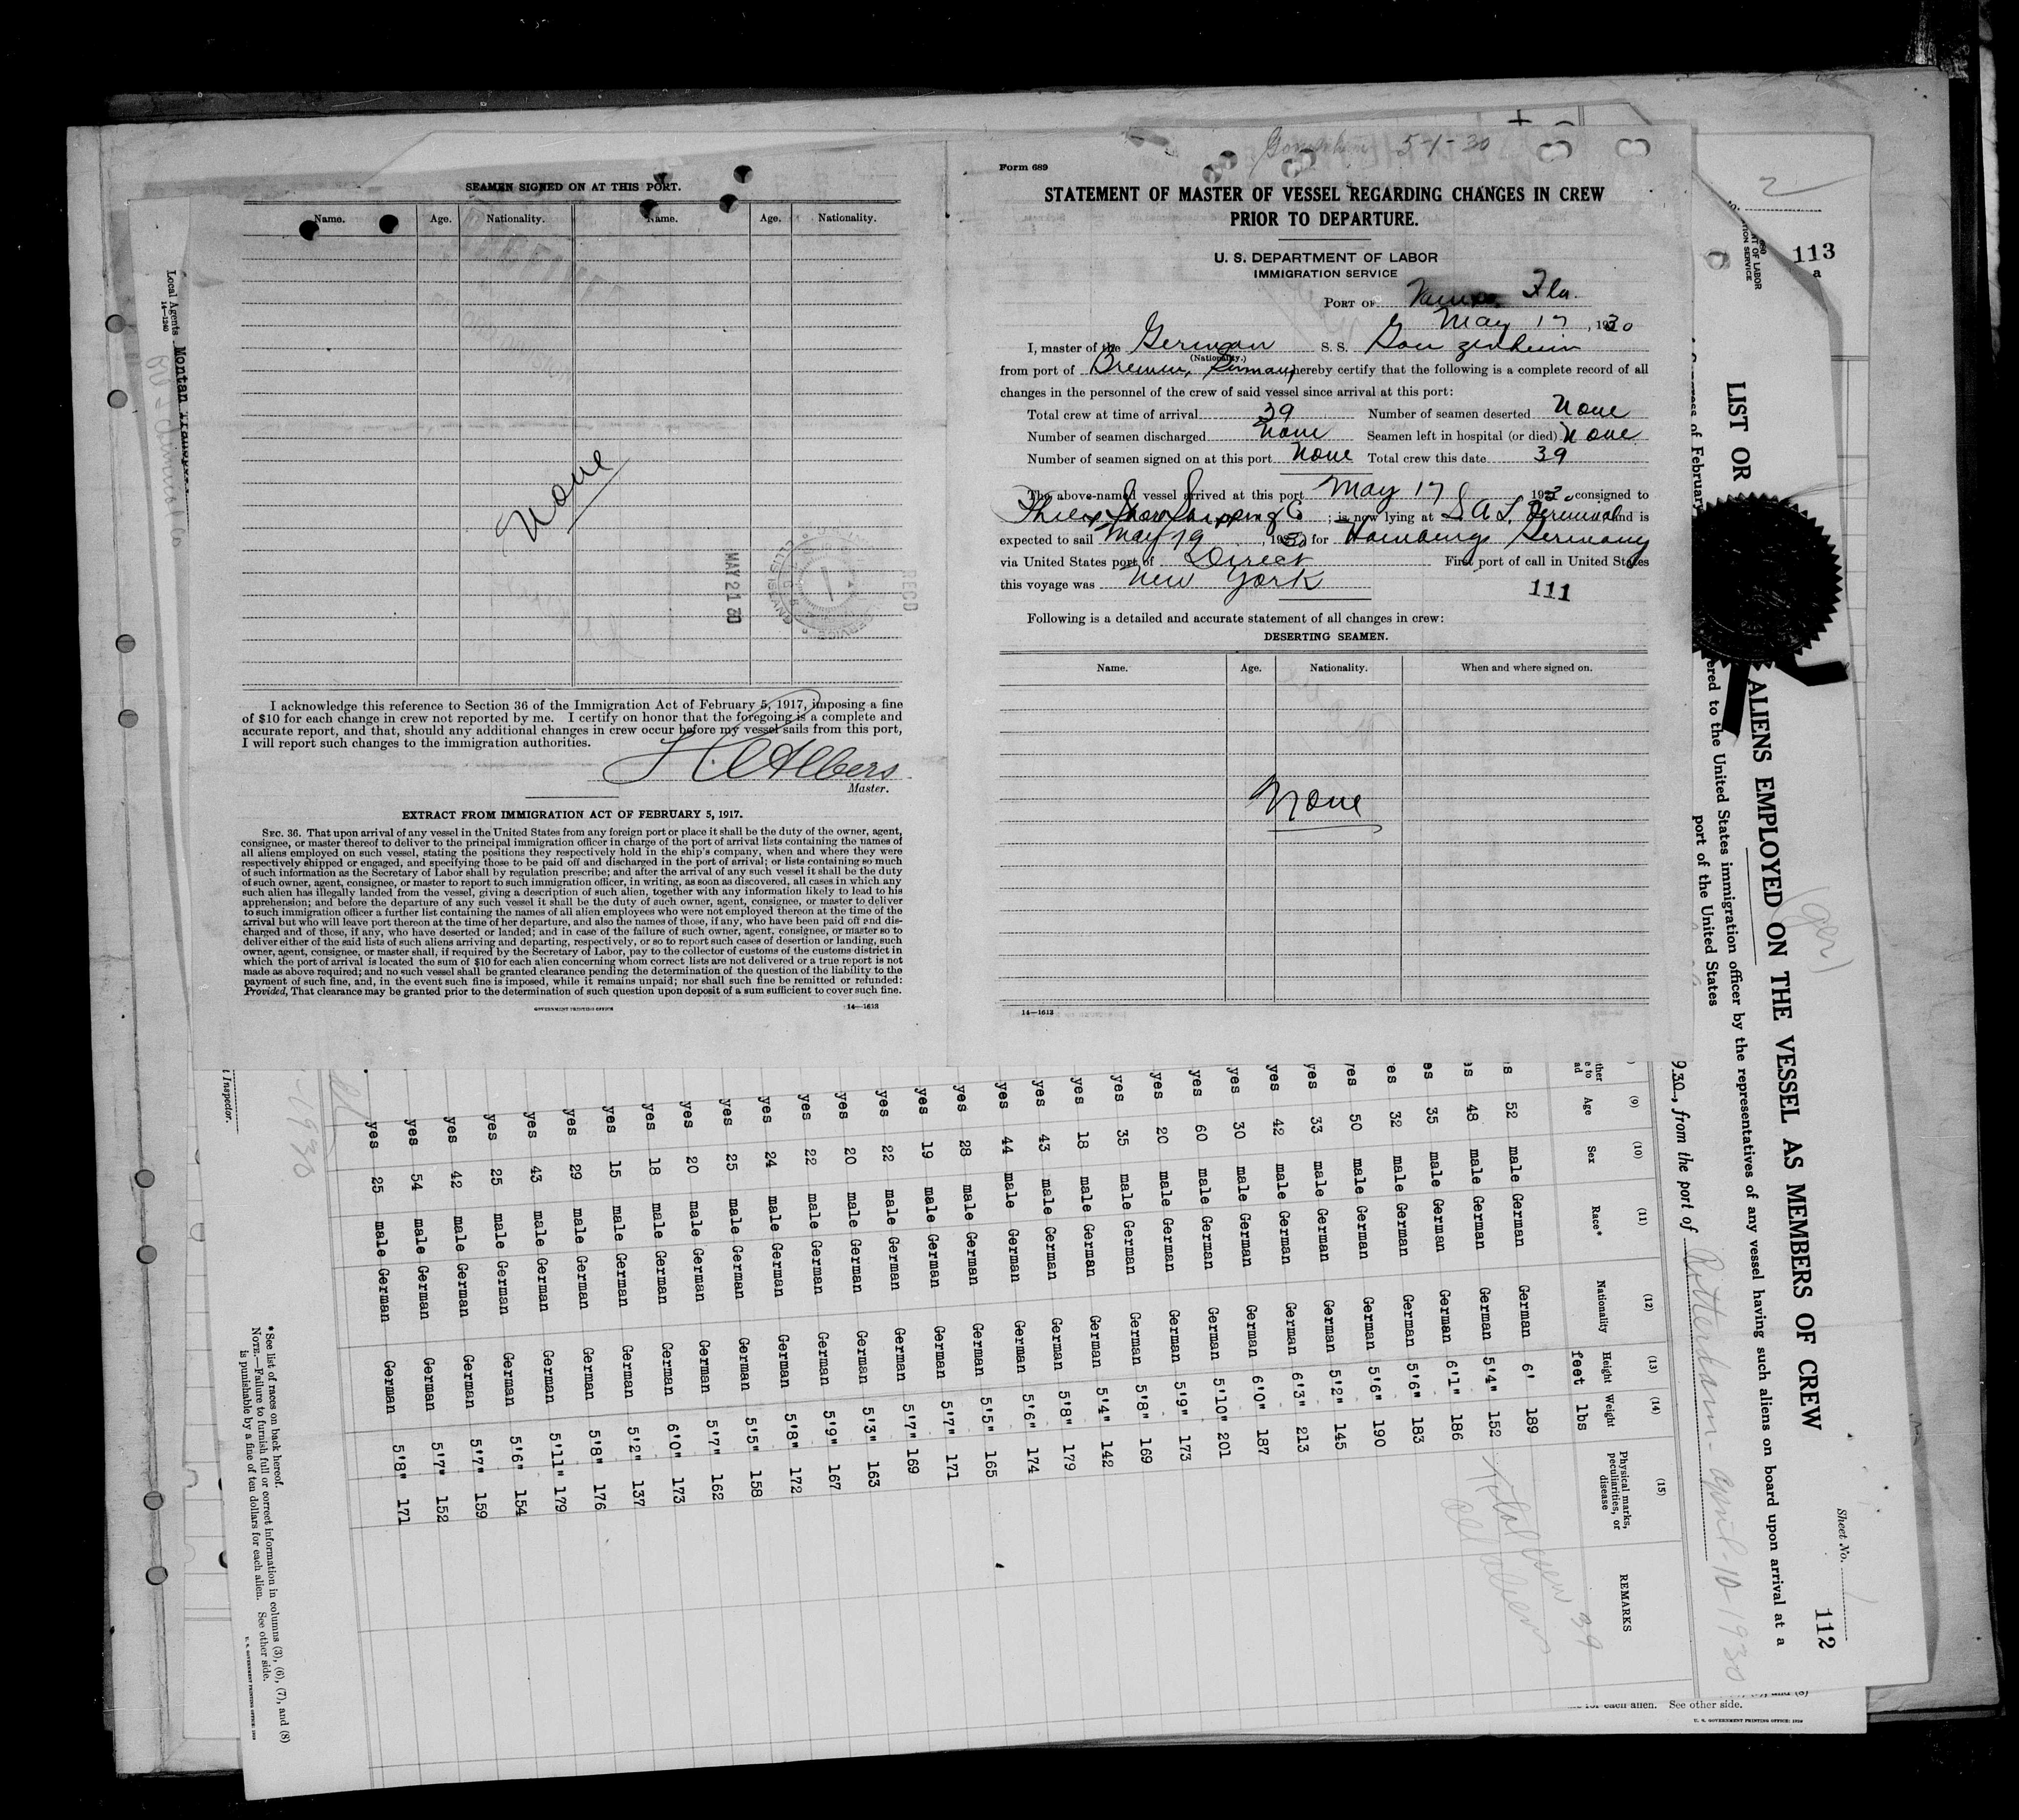 SEAMEN SIGNED ON AT THIS PORT.
Name. Age. Nationality. Name. Age. Nationality.
None
MAY 21 30
RECD
I acknowledge this reference to Section 36 of the Immigration Act of February 5, 1917, imposing a fine
of $10 for each change in crew not reported by me. I certify on honor that the foregoing is a complete and
accurate report, and that, should any additional changes in crew occur before my vessel sails from this port,
I will report such changes to the immigration authorities.
Albers
Master.
EXTRACT FROM IMMIGRATION ACT OF FEBRUARY 5, 1917.
SEC. 36. That upon arrival of any vessel in the United States from any foreign port or place it shall be the duty of the owner, agent,
consignee, or master thereof to deliver to the principal immigration officer in charge of the port of arrival lists containing the names of
all aliens employed on such vessel, stating the positions they respectively hold in the ship's company, when and where they were
respectively shipped or engaged, and specifying those to be paid off and discharged in the port of arrival; or lists containing so much
of such information as the Secretary of Labor shall by regulation prescribe; and after the arrival of any such vessel it shall be the duty
of such owner, agent, consignee, or master to report to such immigration officer, in writing, as soon as discovered, all cases in which any
such alien has illegally landed from the vessel, giving a description of such alien, together with any information likely to lead to his
apprehension; and before the departure of any such vessel it shall be the duty of such owner, agent, consignee, or master to deliver
to such immigration officer a further list containing the names of all alien employees who were not employed thereon at the time of the
arrival but who will leave port thereon at the time of her departure, and also the names of those, if any, who have been paid off and dis-
charged and of those, if any, who have deserted or landed; and in case of the failure of such owner, agent, consignee, or master so to
deliver either of the said lists of such aliens arriving and departing, respectively, or so to report such cases of desertion or landing, such
owner, agent, consignee, or master shall, if required by the Secretary of Labor, pay to the collector of customs of the customs district in
which the port of arrival is located the sum of $10 for each alien concerning whom correct lists are not delivered or a true report is not
made as above required; and no such vessel shall be granted clearance pending the determination of the question of the liability to the
payment of such fine, and, in the event such fine is imposed, while it remains unpaid; nor shall such fine be remitted or refunded:
Provided, That clearance may be granted prior to the determination of such question upon deposit of a sum sufficient to cover such fine.
GOVERNMENT PRINTING OFFICE 14—1613
5-1-30
Form 689
STATEMENT OF MASTER OF VESSEL REGARDING CHANGES IN CREW
PRIOR TO DEPARTURE.
U. S. DEPARTMENT OF LABOR
IMMIGRATION SERVICE
PORT OF Tampa Fla.
May 17, 1930
I, master of the German S. S. Gonzenheim
(Nationality.)
from port of Bremen, Germany hereby certify that the following is a complete record of all
changes in the personnel of the crew of said vessel since arrival at this port:
Total crew at time of arrival 39 Number of seamen deserted None
Number of seamen discharged None Seamen left in hospital (or died) None
Number of seamen signed on at this port None Total crew this date 39
The above-named vessel arrived at this port May 17 1930 consigned to
Shipping Co ; is now lying at S A L Terminal and is
expected to sail May 19, 1930 for Hamburg Germany
via United States port of Direct First port of call in United States
this voyage was New York
111
Following is a detailed and accurate statement of all changes in crew:
DESERTING SEAMEN.
Name. Age. Nationality. When and where signed on.
None
14—1613
Local Agents
14—1240
t Inspector.
113
a
2
OF LABOR
ION SERVICE
Sheet No. 1
112
LIST OR
ALIENS EMPLOYED ON THE VESSEL AS MEMBERS OF CREW
(ger)
of February
ered to the United States immigration officer by the representatives of any vessel having such aliens on board upon arrival at a
port of the United States
930, from the port of Rotterdam - April-10-1930
(9) (10) (11) (12) (13) (14) (15)
Age Sex Race* Nationality Height Weight Physical marks, peculiarities, or disease REMARKS
feet lbs
Total crew 39
52 male German German 6' 189
48 male German German 5'4" 152
35 male German German 6'1" 186
32 male German German 5'6" 183
50 male German German 5'6" 190
33 male German German 5'2" 145
yes 42 male German German 6'3" 213
yes 30 male German German 6'0" 187
yes 60 male German German 5'10" 201
yes 20 male German German 5'9" 173
yes 35 male German German 5'8" 169
yes 18 male German German 5'4" 142
yes 43 male German German 5'8" 179
yes 44 male German German 5'6" 174
yes 28 male German German 5'5" 165
yes 19 male German German 5'7" 171
yes 22 male German German 5'7" 169
yes 20 male German German 5'3" 163
yes 22 male German German 5'9" 167
yes 24 male German German 5'8" 172
yes 25 male German German 5'5" 158
yes 20 male German German 5'7" 162
yes 18 male German German 6'0" 173
yes 15 male German German 5'2" 137
yes 29 male German German 5'8" 176
yes 43 male German German 5'11" 179
yes 25 male German German 5'6" 154
yes 42 male German German 5'7" 159
yes 54 male German German 5'7" 152
yes 25 male German German 5'8" 171
1930
*See list of races on back hereof.
NOTE.—Failure to furnish full or correct information in columns (3), (6), (7), and (8)
is punishable by a fine of ten dollars for each alien. See other side.
for each alien. See other side.
U. S. GOVERNMENT PRINTING OFFICE